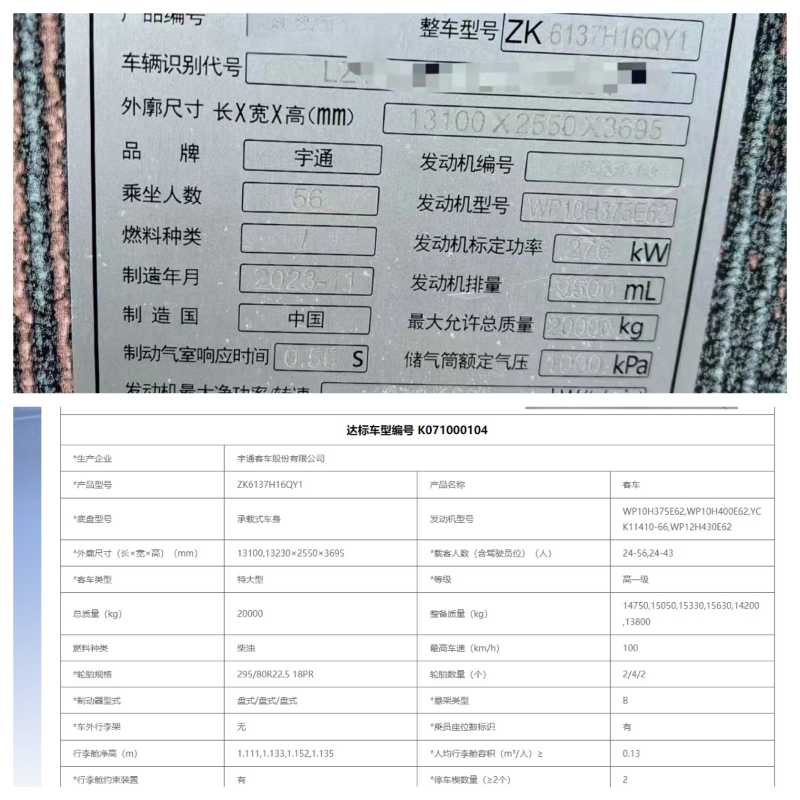 产品编号
整车型号 ZK 6137H16QY1
车辆识别代号 LZ
外廓尺寸 长X宽X高(mm) 13100X2550X3695
品 牌 宇通 发动机编号
乘坐人数 56 发动机型号 WP10H375E62
燃料种类 / 发动机标定功率 276 kW
制造年月 2023-11 发动机排量 9500 mL
制 造 国 中国 最大允许总质量 20000 kg
制动气室响应时间 0.56 S 储气筒额定气压 1000 kPa
发动机最大净功率/转速
达标车型编号 K071000104
*生产企业 宇通客车股份有限公司
*产品型号 ZK6137H16QY1 产品名称 客车
*底盘型号 承载式车身 发动机型号 WP10H375E62,WP10H400E62,YC
K11410-66,WP12H430E62
*外廓尺寸（长×宽×高）（mm） 13100,13230×2550×3695 *载客人数（含驾驶员位）（人） 24-56,24-43
*客车类型 特大型 *等级 高一级
总质量（kg） 20000 整备质量（kg） 14750,15050,15330,15630,14200
,13800
燃料种类 柴油 最高车速（km/h） 100
*轮胎规格 295/80R22.5 18PR 轮胎数量（个） 2/4/2
*制动器型式 盘式/盘式/盘式 *悬架类型 B
*车外行李架 无 *乘员座位数标识 有
行李舱净高（m） 1.111,1.133,1.152,1.135 *人均行李舱容积（m³/人）≥ 0.13
*行李舱约束装置 有 *停车楔数量（≥2个） 2